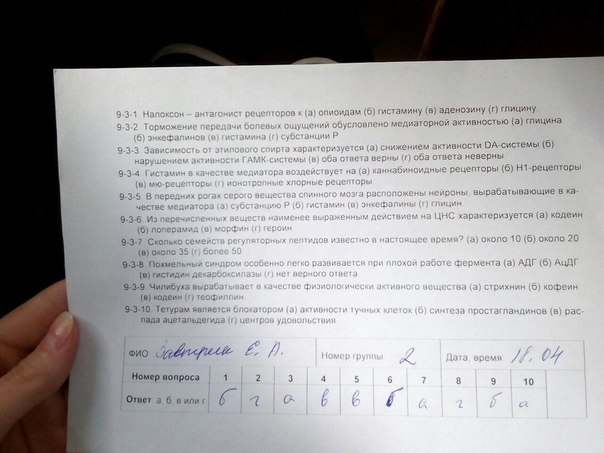 9-3-1 Налоксон – антагонист рецепторов к (а) опиоидам (б) гистамину (в) аденозину (г) глицину
9-3-2 Торможение передачи болевых ощущений обусловлено медиаторной активностью (а) глицина
(б) энкефалинов (в) гистамина (г) субстанции Р
9-3-3 Зависимость от этилового спирта характеризуется (а) снижением активности DA-системы (б)
нарушением активности ГАМК-системы (в) оба ответа верны (г) оба ответа неверны
9-3-4 Гистамин в качестве медиатора воздействует на (а) каннабиноидные рецепторы (б) Н1-рецепторы
(в) мю-рецепторы (г) ионотропные хлорные рецепторы
9-3-5 В передних рогах серого вещества спинного мозга расположены нейроны, вырабатывающие в ка-
честве медиатора (а) субстанцию Р (б) гистамин (в) энкефалины (г) глицин
9-3-6 Из перечисленных веществ наименее выраженным действием на ЦНС характеризуется (а) кодеин
(б) лоперамид (в) морфин (г) героин
9-3-7 Сколько семейств регуляторных пептидов известно в настоящее время? (а) около 10 (б) около 20
(в) около 35 (г) более 50
9-3-8 Похмельный синдром особенно легко развивается при плохой работе фермента (а) АДГ (б) АцДГ
(в) гистидин декарбоксилазы (г) нет верного ответа
9-3-9 Чилибуха вырабатывает в качестве физиологически активного вещества (а) стрихнин (б) кофеин
(в) кодеин (г) теофиллин
9-3-10 Тетурам является блокатором (а) активности тучных клеток (б) синтеза простагландинов (в) рас-
пада ацетальдегида (г) центров удовольствия
ФИО Е. А. Номер группы 2 Дата, время 18.04
Номер вопроса 1 2 3 4 5 6 7 8 9 10
Ответ а, б, в или г б г а в в б а г б а